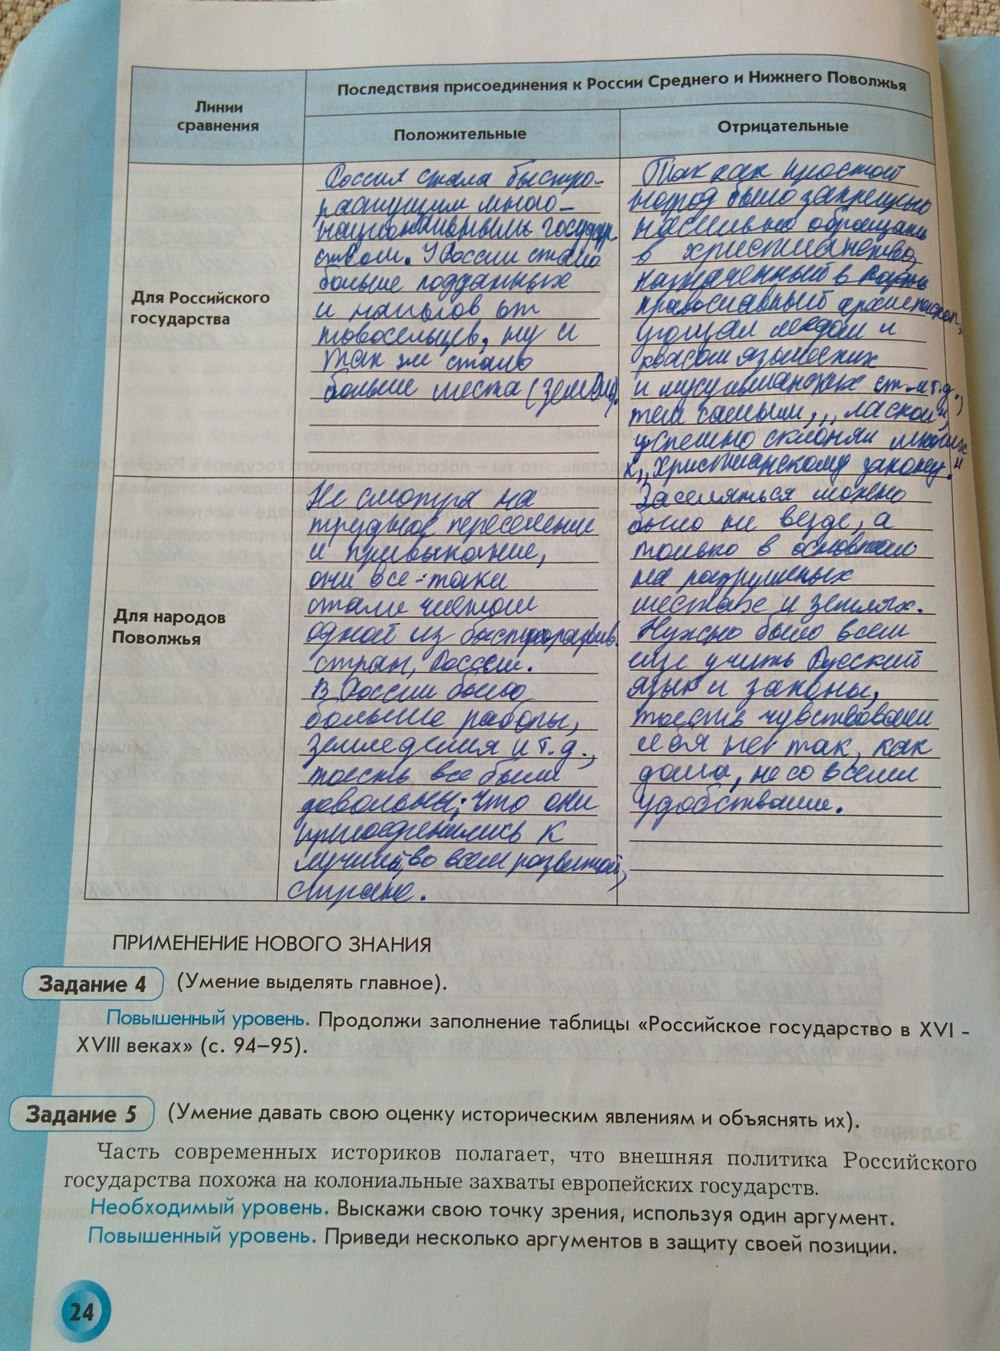 Линии
сравнения
Последствия присоединения к России Среднего и Нижнего Поволжья
Положительные
Отрицательные
Для Российского
государства
Россия стала быстро-
растущим много-
национальным государ
ством. У России стало
больше подданных
и налогов от
новосельцев, ну и
так же стало
больше места (земли).
Так как простой
народ было запрещено
насильно обращать
в христианство,
назначенный в
православный архиепископ,
угощал мёдом и
квасом языческих
и мусульманских ст. и т.д.)
тем самым, „лаской",
успешно склонял многих
к „христианскому закону."
Для народов
Поволжья
Не смотря на
трудное переселение
и привыкание,
они все-таки
стали читом
одной из быстроразвив.
стран, России.
В России было
больше работы,
земледелия и т.д.,
тоесть все были
довольны, что они
присоединились к
лучшей, во всем развитой,
стране.
Заселяться можно
было не везде, а
только в основном
на разрушеных
местах и землях.
Нужно было всем
еще учить Русский
язык и законы,
тоесть чувствовали
себя не так, как
дома, не со всеми
удобствами.
ПРИМЕНЕНИЕ НОВОГО ЗНАНИЯ
Задание 4 (Умение выделять главное).
Повышенный уровень. Продолжи заполнение таблицы «Российское государство в XVI –
XVIII веках» (с. 94–95).
Задание 5 (Умение давать свою оценку историческим явлениям и объяснять их).
Часть современных историков полагает, что внешняя политика Российского
государства похожа на колониальные захваты европейских государств.
Необходимый уровень. Выскажи свою точку зрения, используя один аргумент.
Повышенный уровень. Приведи несколько аргументов в защиту своей позиции.
24